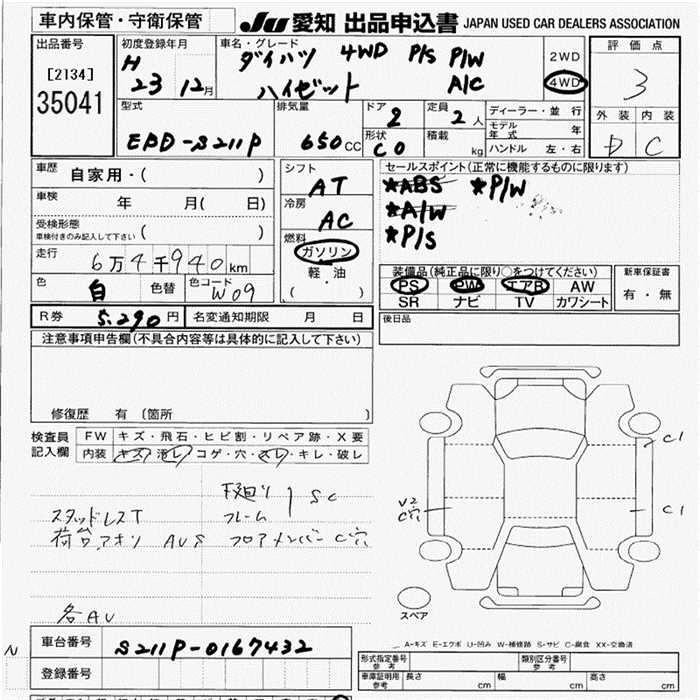 車内保管・守衛保管
JU 愛知 出品申込書 JAPAN USED CAR DEALERS ASSOCIATION
出品番号
[2134]
35041
初度登録年月
H
23 12月
車名・グレード
ダイハツ 4WD P/S P/W
ハイゼット A/C
2WD
4WD
評価点
3
外装 内装
D C
型式
EBD-S211P
排気量
650CC
ドア
2
形状
CO
定員
2人
積載
kg
ディーラー・並行
モデル年式 年
ハンドル 左・右
車歴
自家用・( )
車検
年 月( 日)
受検形態
車検付きのみ記入して下さい
( )
走行
6万4千940km
色
白 色替
色コード
W09
シフト
AT
冷房
AC
燃料
ガソリン
軽・油
( ・ )
セールスポイント(正常に機能するものに限ります)
★ABS ★P/W
★A/W
★P/S
装備品(純正品に限り○をつけてください)
PS PW エアB AW
SR ナビ TV カワシート
新車保証書
有・無
R券 5.290円
名変通知期限 月 日
後日品
注意事項申告欄(不具合内容等は具体的に記入して下さい)
修復歴 有(箇所 )
検査員記入欄
FW キズ・飛石・ヒビ割・リペア跡・X要
内装 キズ・汚レ・コゲ・穴・スレ・キレ・破レ
下廻り SC
スタッドレスT フレーム
荷台,アオリ AUS フロアメンバーC穴
各AU
C1
C1
V2
C穴
スペア
A-キズ E-エクボ U-凹み W-補修跡 S-サビ C-腐食 XX-交換済
N
車台番号
S211P-0167432
登録番号
形式指定番号
参考
類別区分番号
参考
車庫証明用
参考
長さ cm 幅 cm 高さ cm